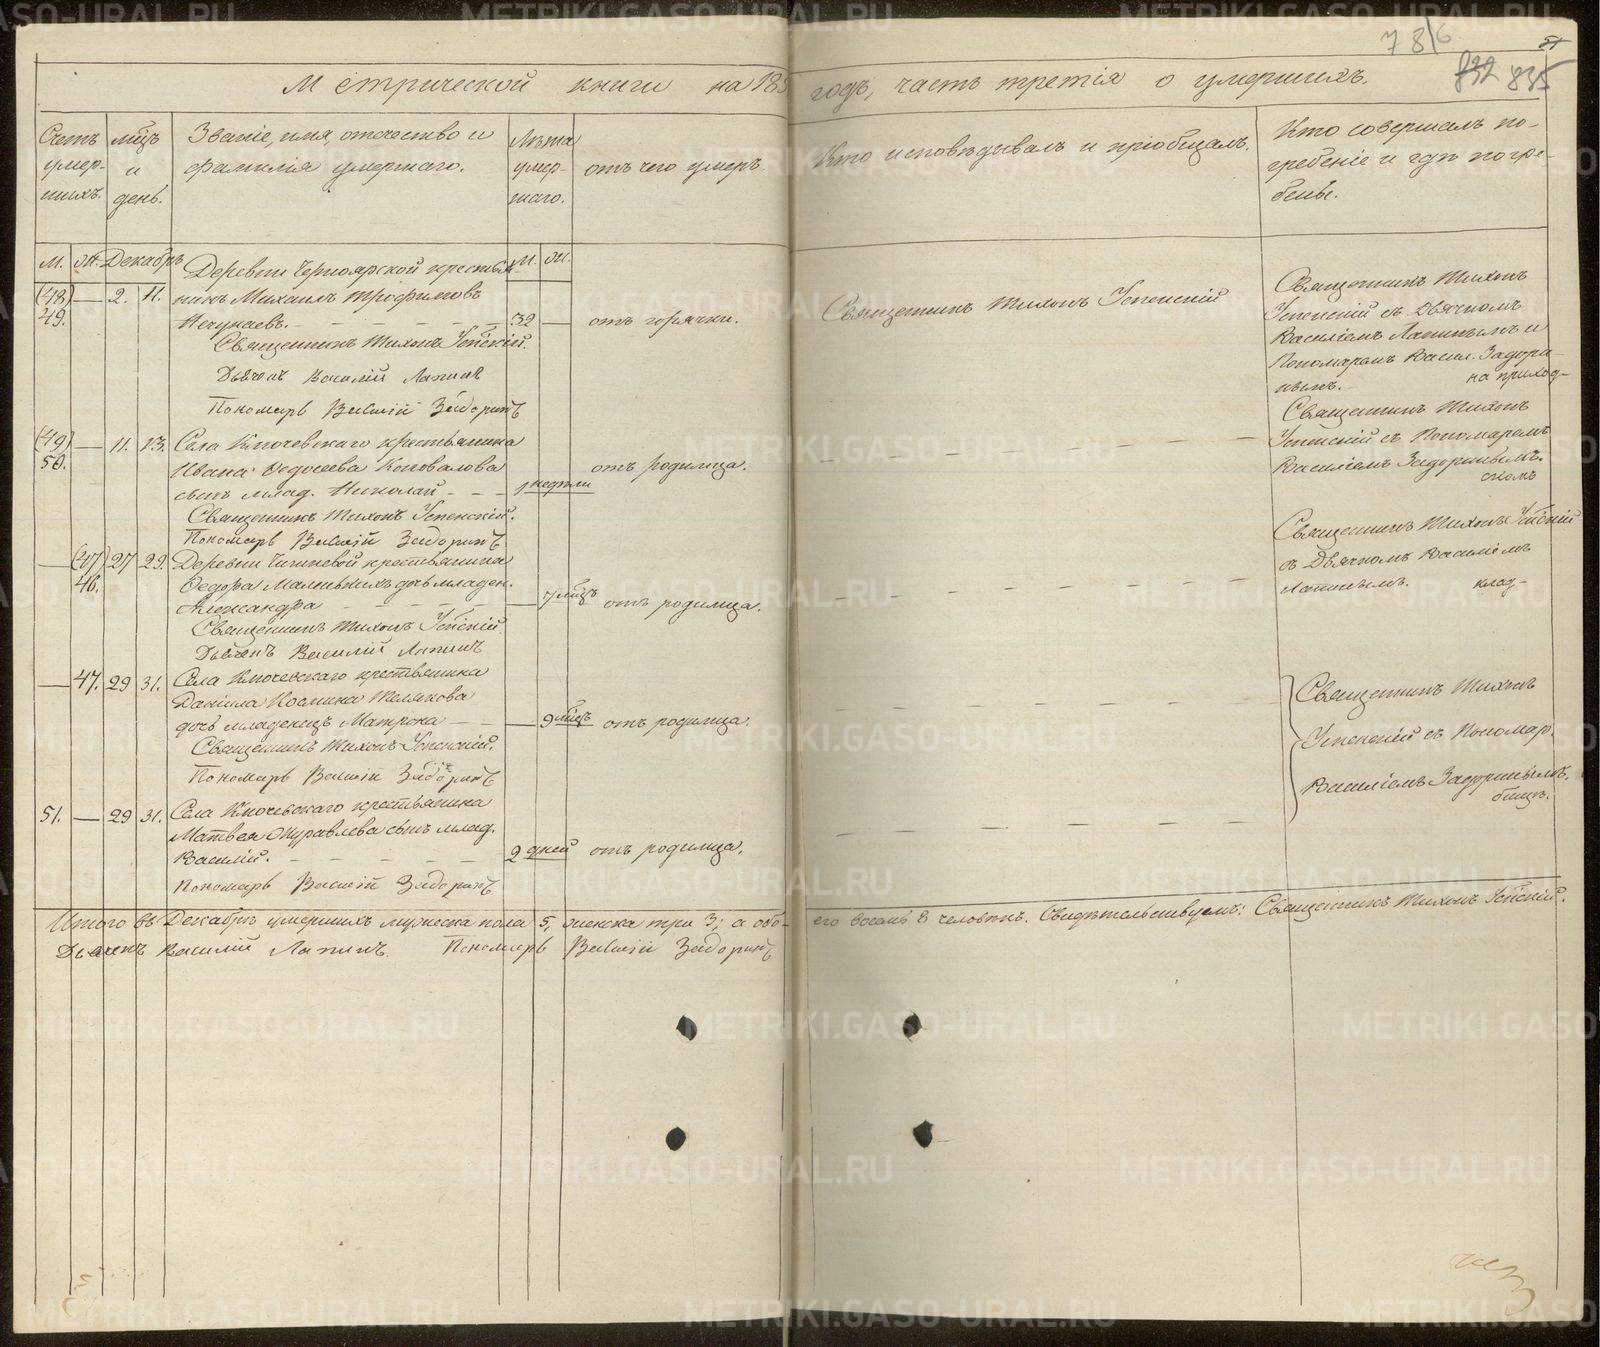 786
51
832 835
Метрической книги на 185 годъ, часть третія о умершихъ.
Счетъ умер- шихъ.
мѣцъ и день.
Званіе, имя, отчество и фамилія умершаго.
Лѣта умер- шаго.
отъ чего умеръ.
Кто исповѣдывалъ и пріобщалъ.
Кто совершалъ по- гребеніе и гдѣ погре- бены.
м. Декабрь м.
Деревни Черноярской крестья-
(48) — 2. 11. нинъ Михаилъ Трофимовъ
49. Нечунаевъ. — — — — 32 — отъ горячки.
Священникъ Тихонъ Успенскій
Священникъ Тихонъ
Успенскій съ Дьячкомъ
Василіемъ Лапинымъ и
Пономаремъ Васил. Задори-
нымъ. — на приход-
Священникъ Тихонъ Успскій.
Дьячекъ Василій Лапинъ
Пономарь Василій Задоринъ
(49) — 11. 13. Села Ключевскаго крестьянина
50. Ивана Федосеева Коновалова
сынъ млад. Николай — — — 1 недѣли отъ родимца.
Священникъ Тихонъ
Успенскій съ Пономаремъ
Василіемъ Задоринымъ.
скомъ
Священникъ Тихонъ Успенскій.
Пономарь Василій Задоринъ
— (47) 27 29. Деревни крестьянина
46. Федора Малыхъ дочь младен.
Александра — — — — — 7 мѣцъ отъ родимца.
Священникъ Тихонъ Успскій
съ Дьячкомъ Василіемъ
Лапинымъ. клад-
Священникъ Тихонъ Успскій
Дьячекъ Василій Лапинъ
— 47. 29 31. Села Ключевскаго крестьянина
Даніила Космина Телякова
дочь младенецъ Матрона — — — 9 мѣцъ отъ родимца.
Священникъ Тихонъ
Успенскій съ Пономар.
Василіемъ Задоринымъ.
бищѣ.
Священникъ Тихонъ Успенскій.
Пономарь Василій Задоринъ
51. — 29 31. Села Ключевскаго крестьянина
Матвея Журавлева сынъ млад.
Василій. — — — — — 2 дней отъ родимца.
Пономарь Василій Задоринъ
Итого въ Декабрѣ умершихъ мужеска пола 5, женска три 3; а обо- его восемь 8 человѣкъ. Свидѣтельствуемъ: Священникъ Тихонъ Успскій.
Дьячекъ Василій Лапинъ. Пономарь Василій Задоринъ
METRIKI.GASO-URAL.RU